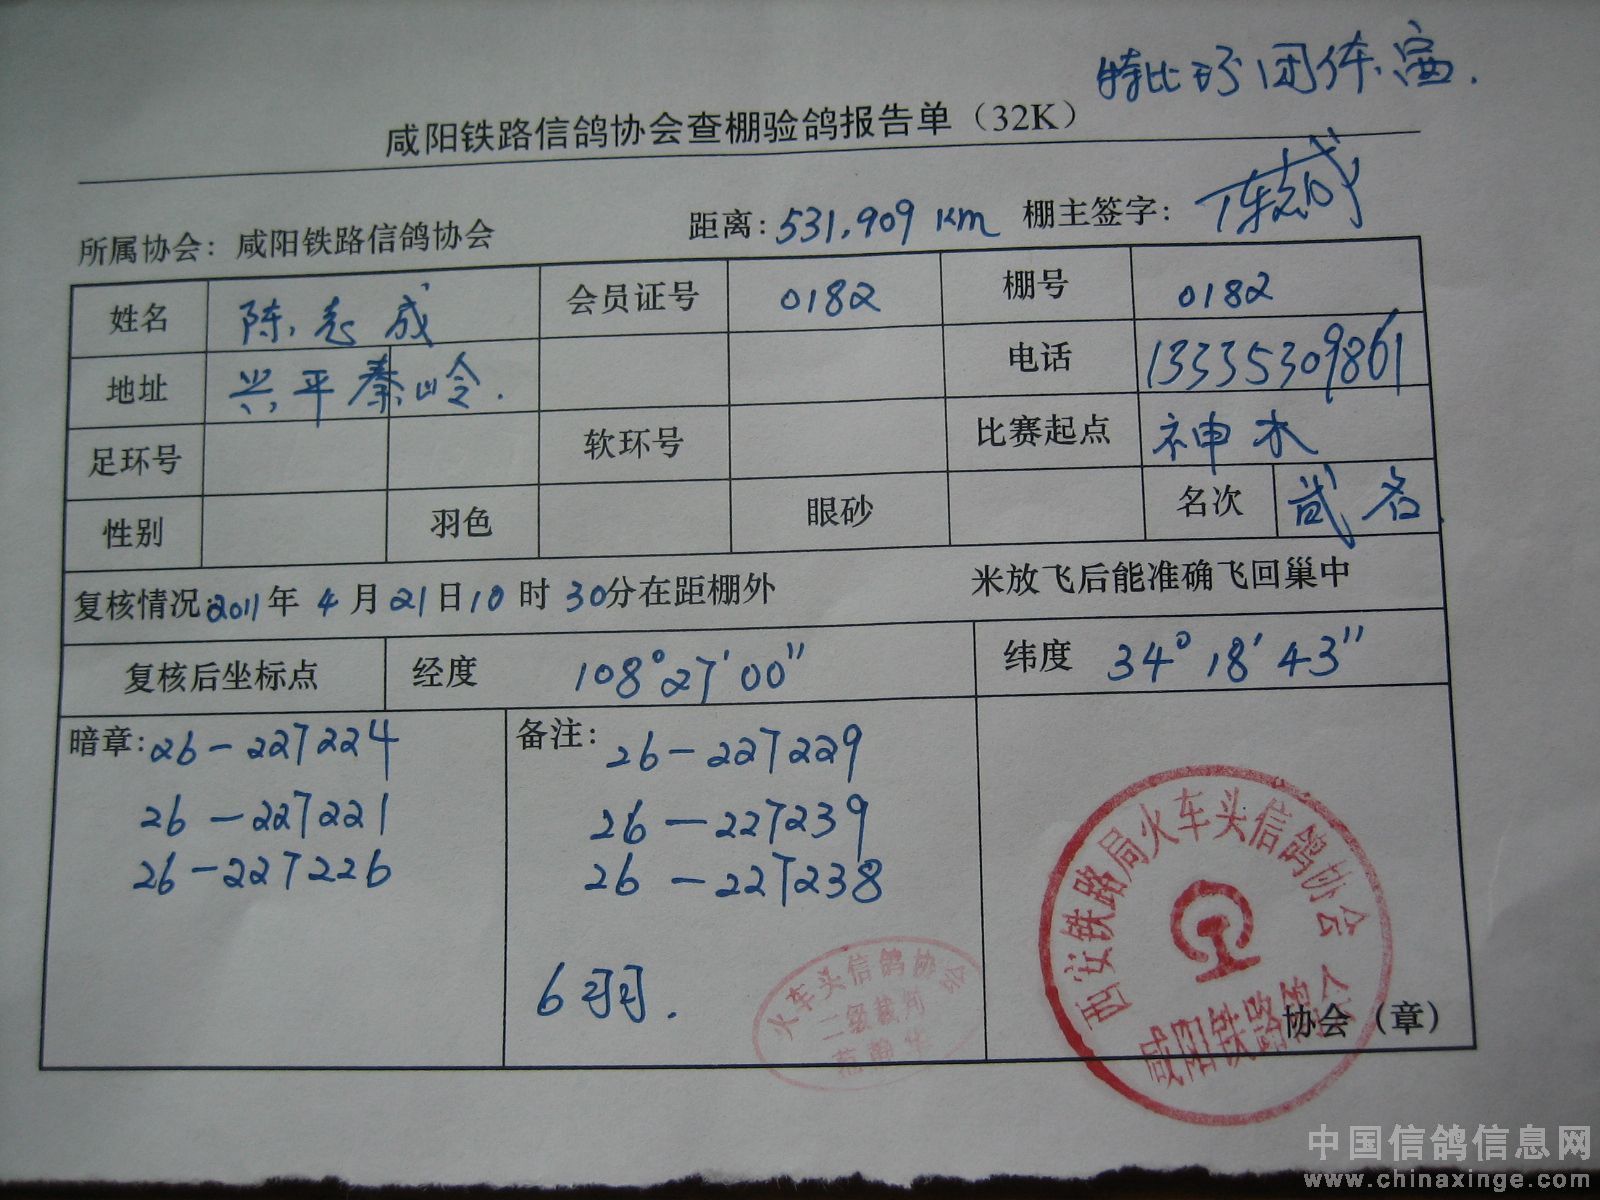 特比环团体赛.
咸阳铁路信鸽协会查棚验鸽报告单（32K）
所属协会：咸阳铁路信鸽协会 距离：531.909 km 棚主签字：陈志成
姓名 陈志成 会员证号 0182 棚号 0182
地址 兴平秦岭. 电话 13335309861
足环号 软环号 比赛起点 神木
性别 羽色 眼砂 名次 贰名
复核情况：2011年 4 月 21日10 时 30分在距棚外 米放飞后能准确飞回巢中
复核后坐标点 经度 108°27′00″ 纬度 34°18′43″
暗章：26-227224 备注：26-227229
26-227221 26-227239
26-227226 26-227238
6羽.
火车头信鸽协会
二级裁判
西安铁路局火车头信鸽协会
咸阳铁路
协会（章）
中国信鸽信息网
www.chinaxinge.com